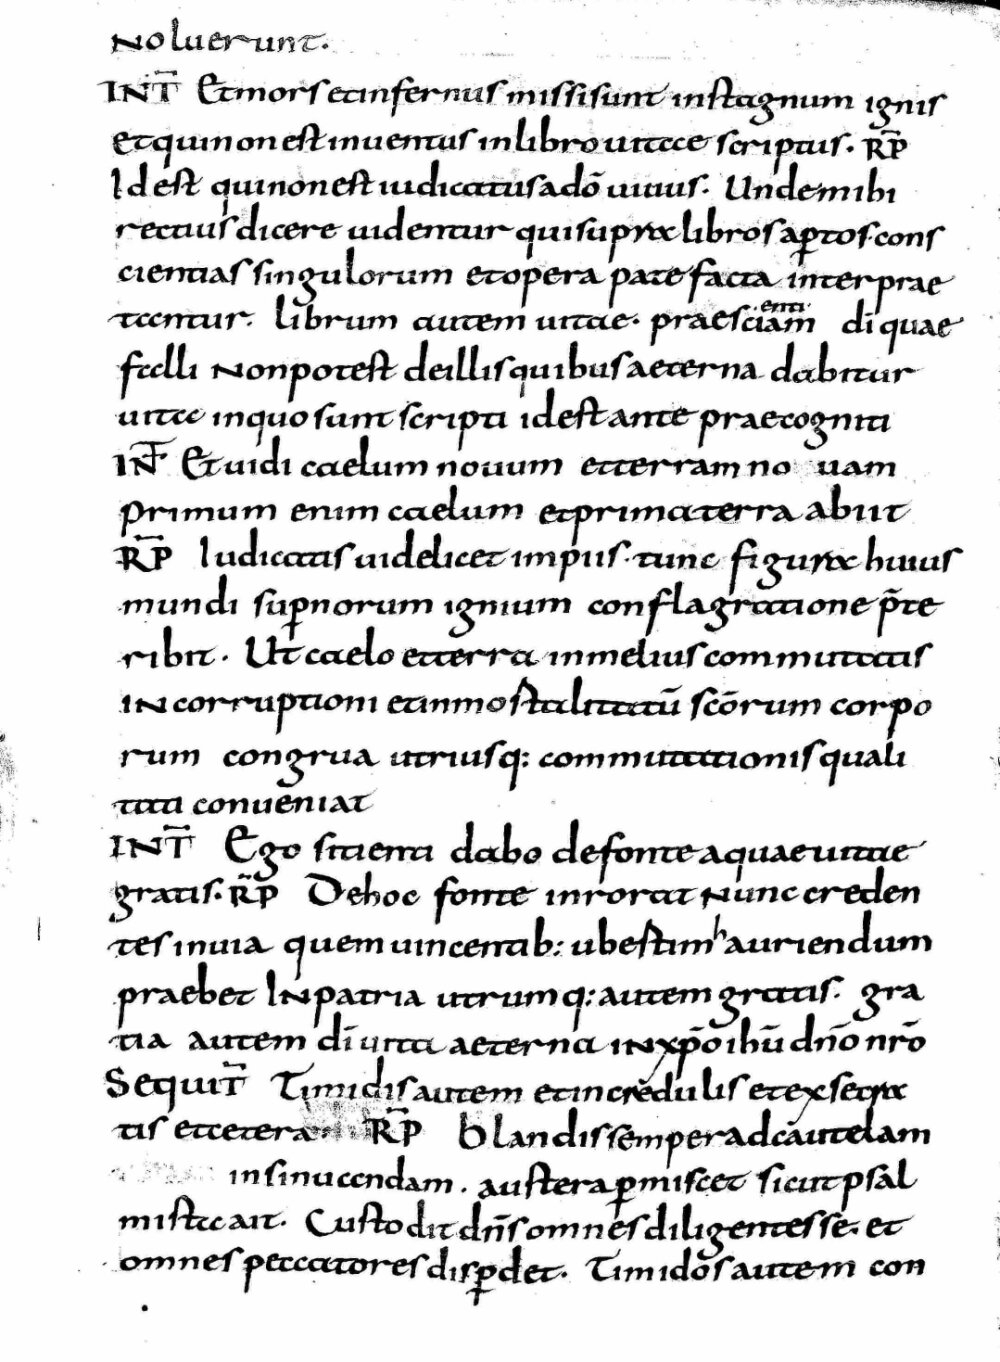 Noluerunt.
INT̄ Et mors et infernus missi sunt in stagnum ignis
et qui non est inventus in libro vitae scriptus. R̄P
Id est qui non est iudicatus a dō vivus. Unde mihi
rectius dicere videntur qui supra libros aꝑtos. cons
cientias singulorum et opera patefacta interprae
tentur. librum autem vitae. praescientiam di quae
falli Non potest de illis quibus aeterna dabitur
vita in quo sunt scripti id est ante praecogniti
IN̄T Et vidi caelum novum et terram novam
Primum enim caelum et prima terra abiit
R̄P Iudicatis videlicet impiis. tunc figura huius
mundi suꝑnorum ignium conflagratione p̄te
ribit. Ut caelo et terra in melius commutatis
IN corruptioni et inmostalitatū scōrum corpo
rum congrua utriusq: commutationis quali
tati conveniat
INT̄ Ego sitienti dabo de fonte aquae vitae
gratis. R̄P De hoc fonte inrorat Nunc creden
tes in via quem vincentib: ubestim hauriendum
praebet IN patria utrumq: autem gratis. gra
tia autem dī vita aeterna IN xp̄o ihū dn̄o nr̄o
Sequit̄ Timidis autem et incredulis et exsecra
tis et cetera R̄P Blandis semper ad cautelam
insinuandam. austera ꝑmiscet sicut psal
mista ait. Custodit dn̄s omnes diligentes se. et
omnes peccatores disꝑdet. Timidos autem con